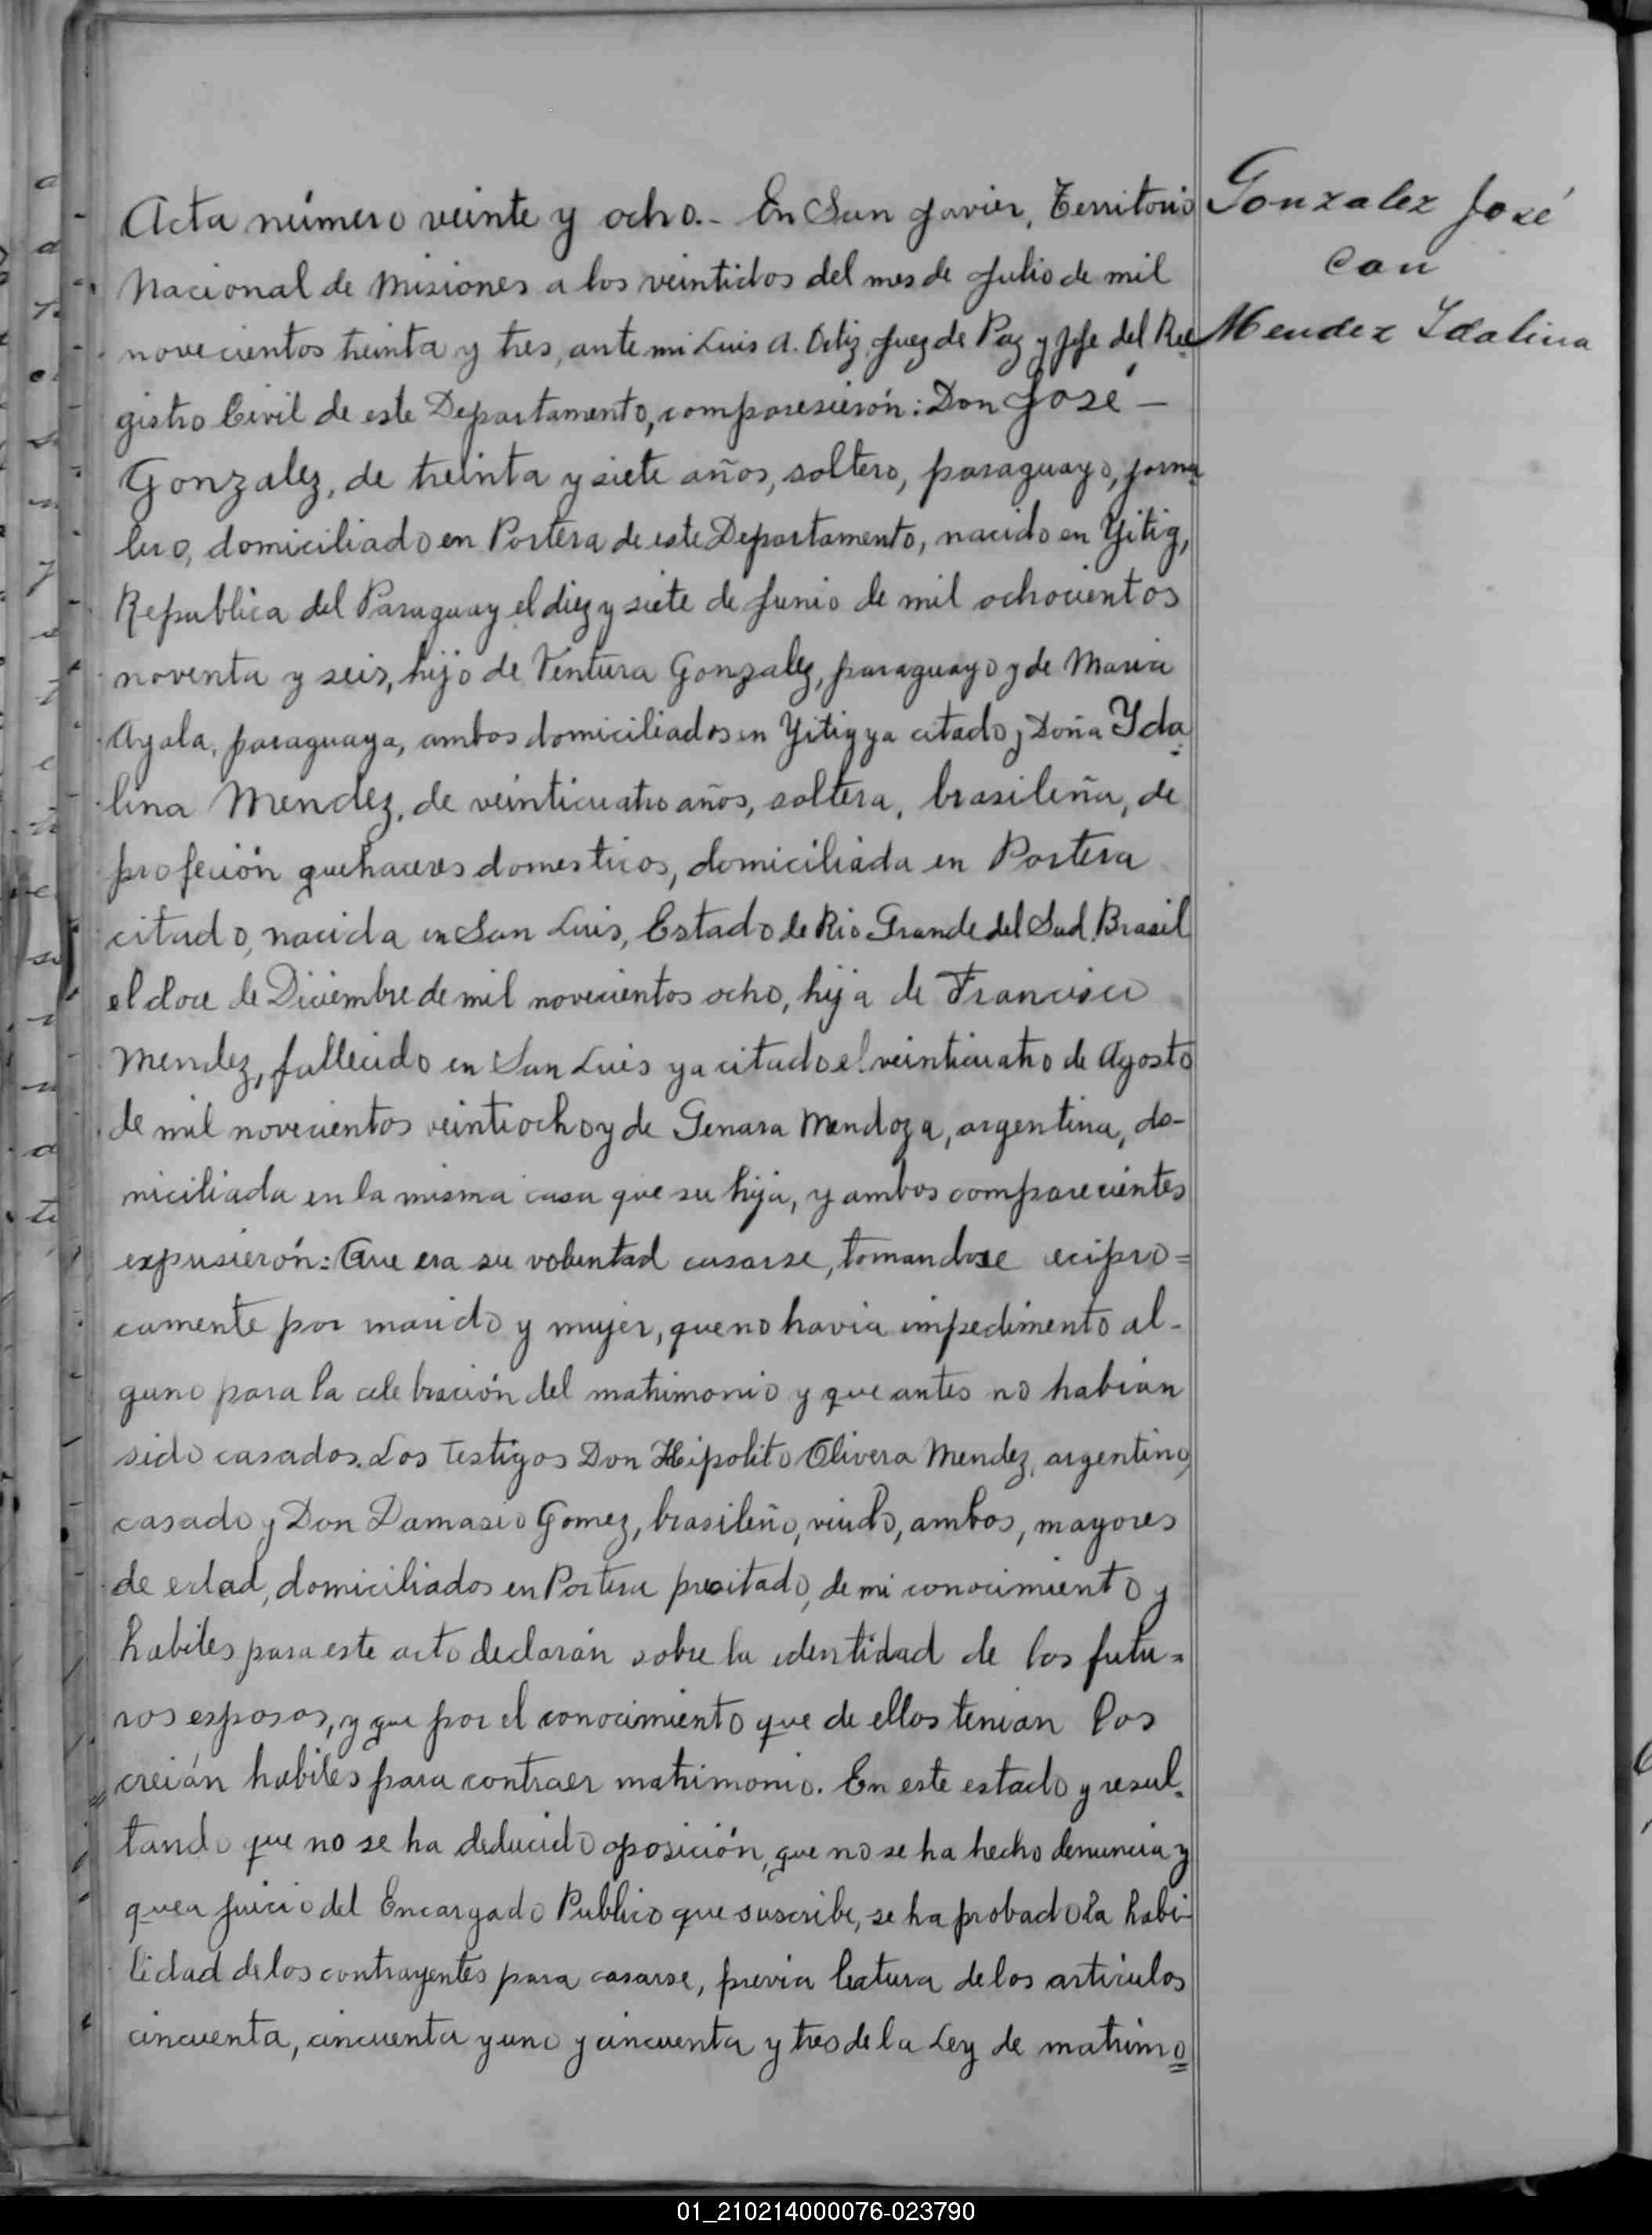 Acta número veinte y ocho.- En San Javier, Territorio
Nacional de Misiones a los veintidos del mes de Julio de mil
novecientos treinta y tres, ante mi Luis A. Ortiz, Juez de Paz y Jefe del Re
gistro Civil de este Departamento, comparesierón: Don José —
Gonzalez, de treinta y siete años, soltero, paraguayo, jorna
lero, domiciliado en Portera de este Departamento, nacido en Yitiy,
Republica del Paraguay el diez y siete de Junio de mil ochocientos
noventa y seis, hijo de Ventura Gonzalez, paraguayo y de Maria
Ayala, paraguaya, ambos domiciliados en Yitiy ya citado y Doña Yda
lina Mendez, de veinticuatro años, soltera, brasileña, de
profeción quehaceres domesticos, domiciliada en Portera
citado, nacida en San Luis, Estado de Rio Grande del Sud Brasil
el doce de Diciembre de mil novecientos ocho, hija de Francisco
Mendez, fallecido en San Luis ya citado el veinticuatro de Agosto
de mil novecientos veintiocho y de Genara Mendoza, argentina, do-
miciliada en la misma casa que su hija, y ambos comparecientes
expusierón: Que era su voluntad casarse, tomandose recipro=
camente por marido y mujer, que no havia impedimento al-
guno para la celebración del matrimonio y que antes no habian
sido casados. Los testigos Don Hipolito Olivera Mendez, argentino,
casado y Don Damasio Gomez, brasileño, viudo, ambos, mayores
de edad, domiciliados en Portera precitado, de mi conocimiento y
habiles para este acto declarán sobre la identidad de los futu=
ros esposos, y que por el conocimiento que de ellos tenian los
creián habiles para contraer matrimonio. En este estado y resul=
tando que no se ha deducido oposición, que no se ha hecho denuncia y
que a juicio del Encargado Publico que suscribe, se ha probado la habi-
lidad de los contrayentes para casarse, previa lectura de los articulos
cincuenta, cincuenta y uno y cincuenta y tres de la Ley de matrimo
Gonzalez José
con
Mendez Ydalina
01_210214000076-023790